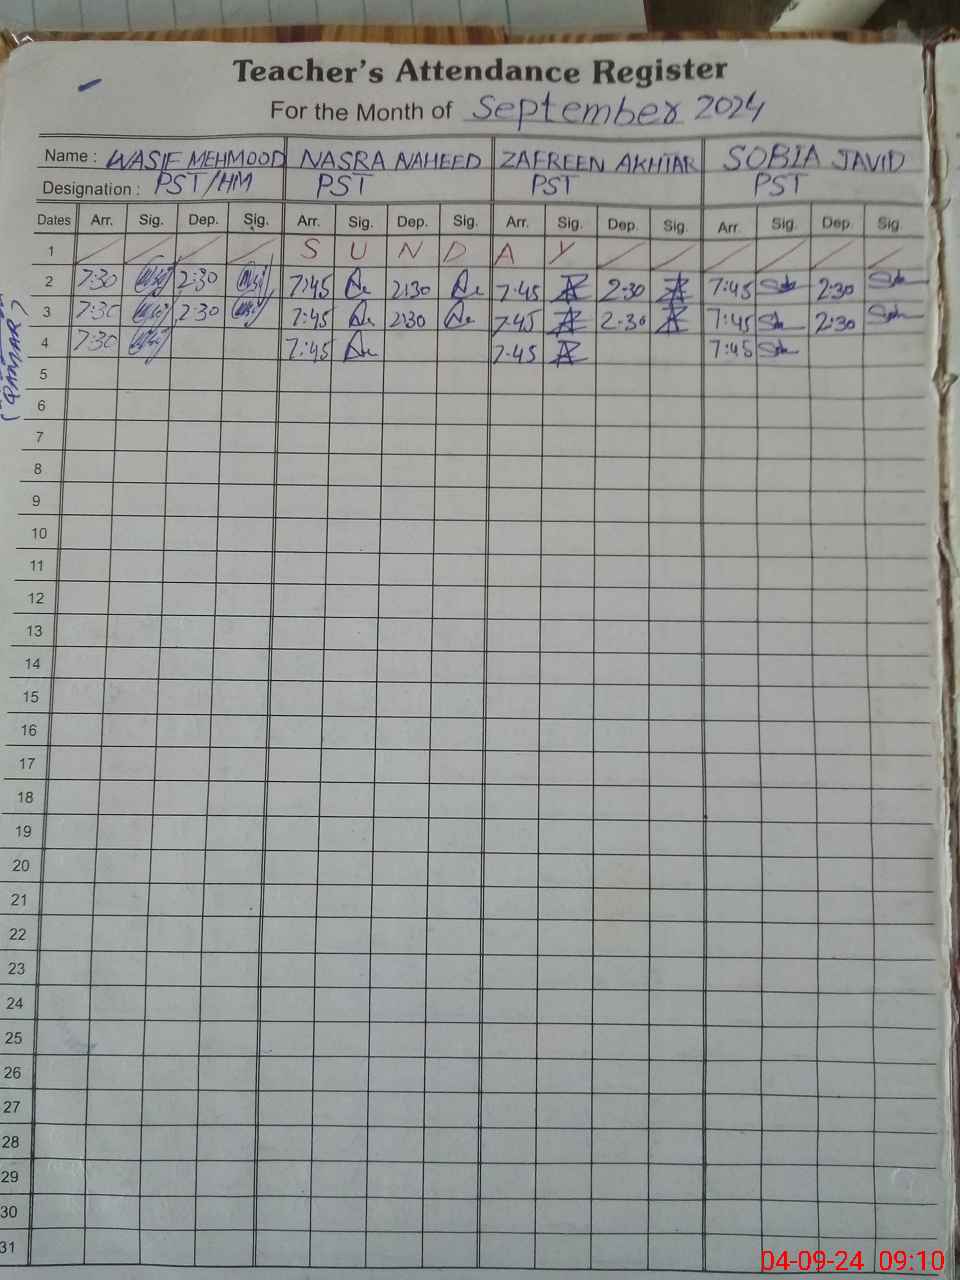 Teacher's Attendance Register
For the Month of September 2024
Name : WASIF MEHMOOD NASRA NAHEED ZAFREEN AKHTAR SOBIA JAVID
Designation : PST/HM PST PST PST
Dates Arr. Sig. Dep. Sig. Arr. Sig. Dep. Sig. Arr. Sig. Dep. Sig. Arr. Sig. Dep. Sig.
1 S U N D A Y
2 7:30 2:30 7:45 2:30 7:45 2:30 7:45 2:30
3 7:30 2:30 7:45 2:30 7:45 2:30 7:45 2:30
4 7:30 7:45 7:45 7:45
5
6
7
8
9
10
11
12
13
14
15
16
17
18
19
20
21
22
23
24
25
26
27
28
29
30
31
04-09-24 09:10